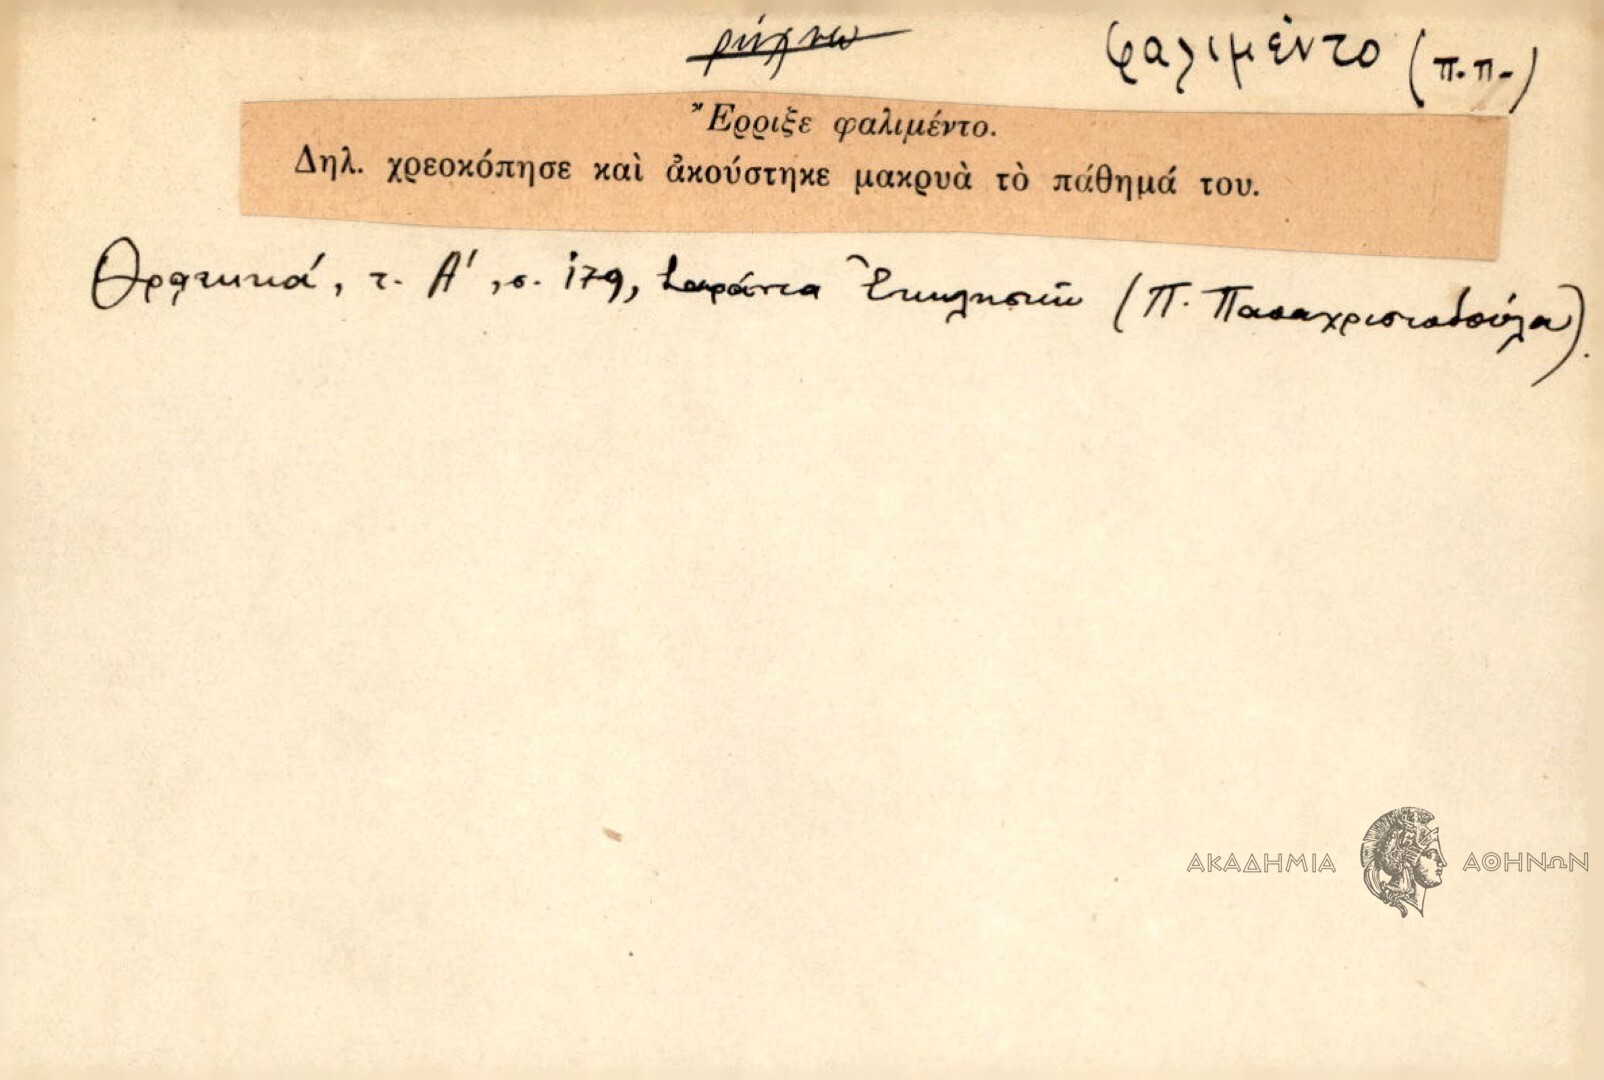 ρίχνω φαλιμέντο (π.π.)
Ἔρριξε φαλιμέντο.
Δηλ. χρεοκόπησε καὶ ἀκούστηκε μακρυὰ τὸ πάθημά του.
Θρᾳκικά, τ. Α', σ. 179, Σαράντα Ἐκκλησιῶν (Π. Παπαχριστοδούλου).
ΑΚΑΔΗΜΙΑ ΑΘΗΝΩΝ